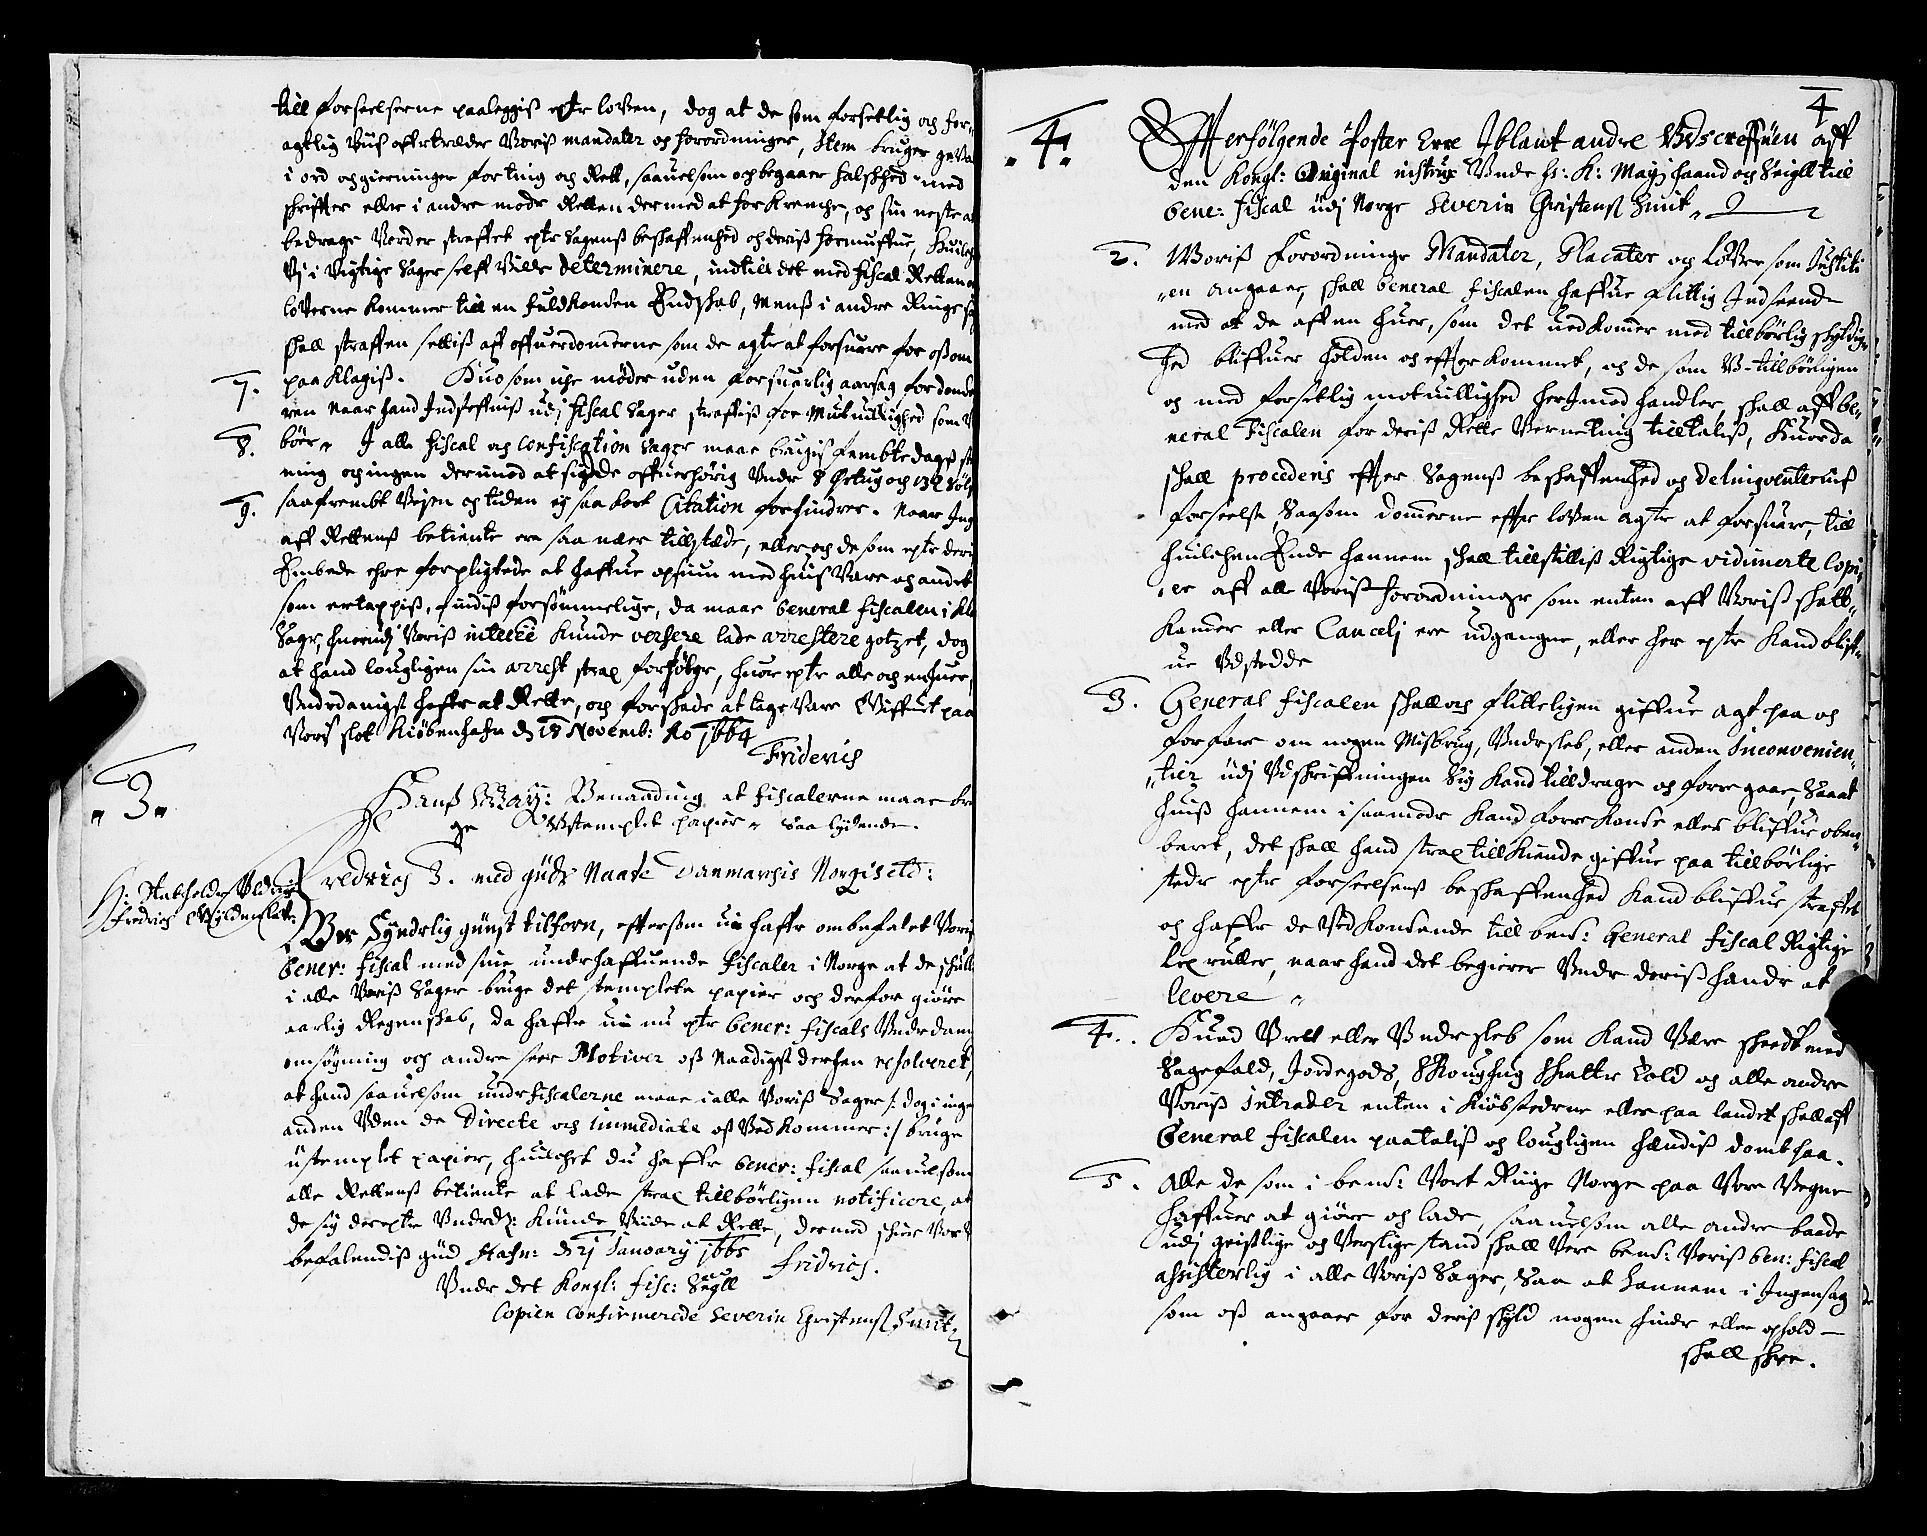 till forseelserne paaleggis eptr loven, dog at de som forsetlig och for-
agtlig Viis offvertræder Voris mandater og forordninger, Item bruger
i ord och gierninger for ting och Rett, saauelsom och begaaer falschhed med
schrifter eller i andre mode Retten dermed at forkrenche, og sin neste at
bedrage Vorder straffet eptr Sagens beschaffenhed och deris formuffue, Huilch
Vj i Vigtige Sager self Ville determinere, indtill det med fiscal Retten
loverne kommer till en fuldkonden Endschab, Mens i andre Ringe
schall straffen settis aff offuerdomerne som de agte at forsuare for oss om
7. paa Klagis. Huo som iche møder uden forsuarlig aarsag for domme
ren naar hand Indsteffnis udj fiscal Sager straffis for Mutuillighed som
8. bøer. I alle fiscal och Confiscation Sager maae brugis fembte dags
ning och ingen derimod at sidde offuerhørig Under 8 Ørtug och 13 Sølf
9. saafrembt Vejen og tiden ej saa kort Citation forhindrer. Naar Ing
aff Rettens betiente ere saa nær tillstæde, eller och de som eptr deris
Embede ere forpligtede at haffue opsiun med huis Vare och andet
som ertappis, findis forsømmelige, da maae General fiscalen i
Sager, huorudj Voris interesse kunde versere lade arrestere gotzet, dog
at hand lougligen sin arrest strax forfølger, huor eptr alle och en huer,
Underdanigst hafve at Rette, och for schade at tage Vare Giffuet paa
Vort slot Kiøbenhafn d 18 Novemb: Ao 1664
Friderich
.3. Kongl May: Benaading at fiscalerne maae bru
ge Ustemplet papier. Saa lydende.
Fredrich 3. med Guds Naade Danmarchis Norgis etc:
H: Statholder Uldrich
Fredrich Gyldenløve
Vor Synderlig gunst tilforn, eftersom vii hafve ombefalet Voris
Gener: fiscal med sine underhaffuende fiscaler i Norge at de schulle
i alle Voris Sager bruge det stemplete papier och derfor giøre
aarlig Regenschab, da hafve vii nu eptr Gener: fiscals Underdanig
ansøgning och andre flere Motiver oss Naadigst derhen resolveret,
at hand saauelsom underfiscalerne maae i alle Voris Sager /: dog i ingen
anden Uden de Directe och immediate oss Vedkommer :/ bruge
ustemplet papier, huilchet du hafver Gener: fiscal saauelsom
alle Rettens betiente at lade strax tillbørligen notificere, at
de sig derepter Underd: kunde Viide at Rette, dermed scheer Vor V
befalendis gud Hafn: d 21 January 1665
Fridrich.
Under det Kongl: fisc: Seigll
Copien Confirmerede Severin Christens Smit
4
.4. Efterfølgende Poster Ere Iblant andre Udscreffuen aff
den Kongl: Original instrux Unde hs: K: Mayts haand och Seigll till
Gene: fiscal udj Norge Severin Christens Smit
2. Woris Forordninger Mandater, Placater och lover som Justiti
en angaaer, schall General fiscalen haffue flittig Indseende
med at de aff en huer, som det vedkomer med tillbørlig schyldig-
hed bliffuer holden och effterkommet, och de som U-tillbørligen
og med forsetlig motuillighed herimod handler, schall aff Ge-
neral Fiscalen for deris Rette Verneting tilltalis, Huor da
schall procederis effter Sagens beschaffenhed og Delinqventernis
forseelse, Saasom domerne effter loven agte at forsuare, till
huilchen Ende hannem schall tillstillis Rigtige vidimerte Copi-
er aff alle Voris forordninger som enten aff Voris schatt-
Kamer eller Cancelj ere udgangne, eller her eptr kand bliff-
ue Udstedde
3. General fiscalen schall och flitteligen giffue agt paa och
forfare om nogen Misbrug, Undersleb, eller anden Inconvenien-
tier udj Udschriffningen Sig kand tilldrage og foregaae, Saa at
huis hannem i saamode kand forekomme eller bliffue oben-
baret, det schall hand strax tillkiende giffue paa tillbørlige
steder eptr forseelsens beschaffenhed kand bliffue straffet
och hafver de Vedkommende till bemt: General fiscal Rigtige
lex ruller, naar hand det begierer Under deris hænder at
levere
4. Huad Uret eller Undersleb som kand Være scheedt med
Sagefald, Jordegods, Schoughug Schatter Told og alle andre
Voris intrader enten i Kiøbstederne eller paa landet schall aff
General fiscalen paatalis och lougligen hændis domb haa.
5. Alle de som i bemt: Vort Riige Norge paa Vore Vegne
haffuer at giøre og lade, saauelsom alle andre baade
udj geistlige og Verslige stand schall Vere bemt: Voris Gen: fiscal
assisterlig i alle Voris Sager, Saa at hannem i Ingen sag
som oss angaaer for deris schyld nogen hinder eller ophold
schall schee.